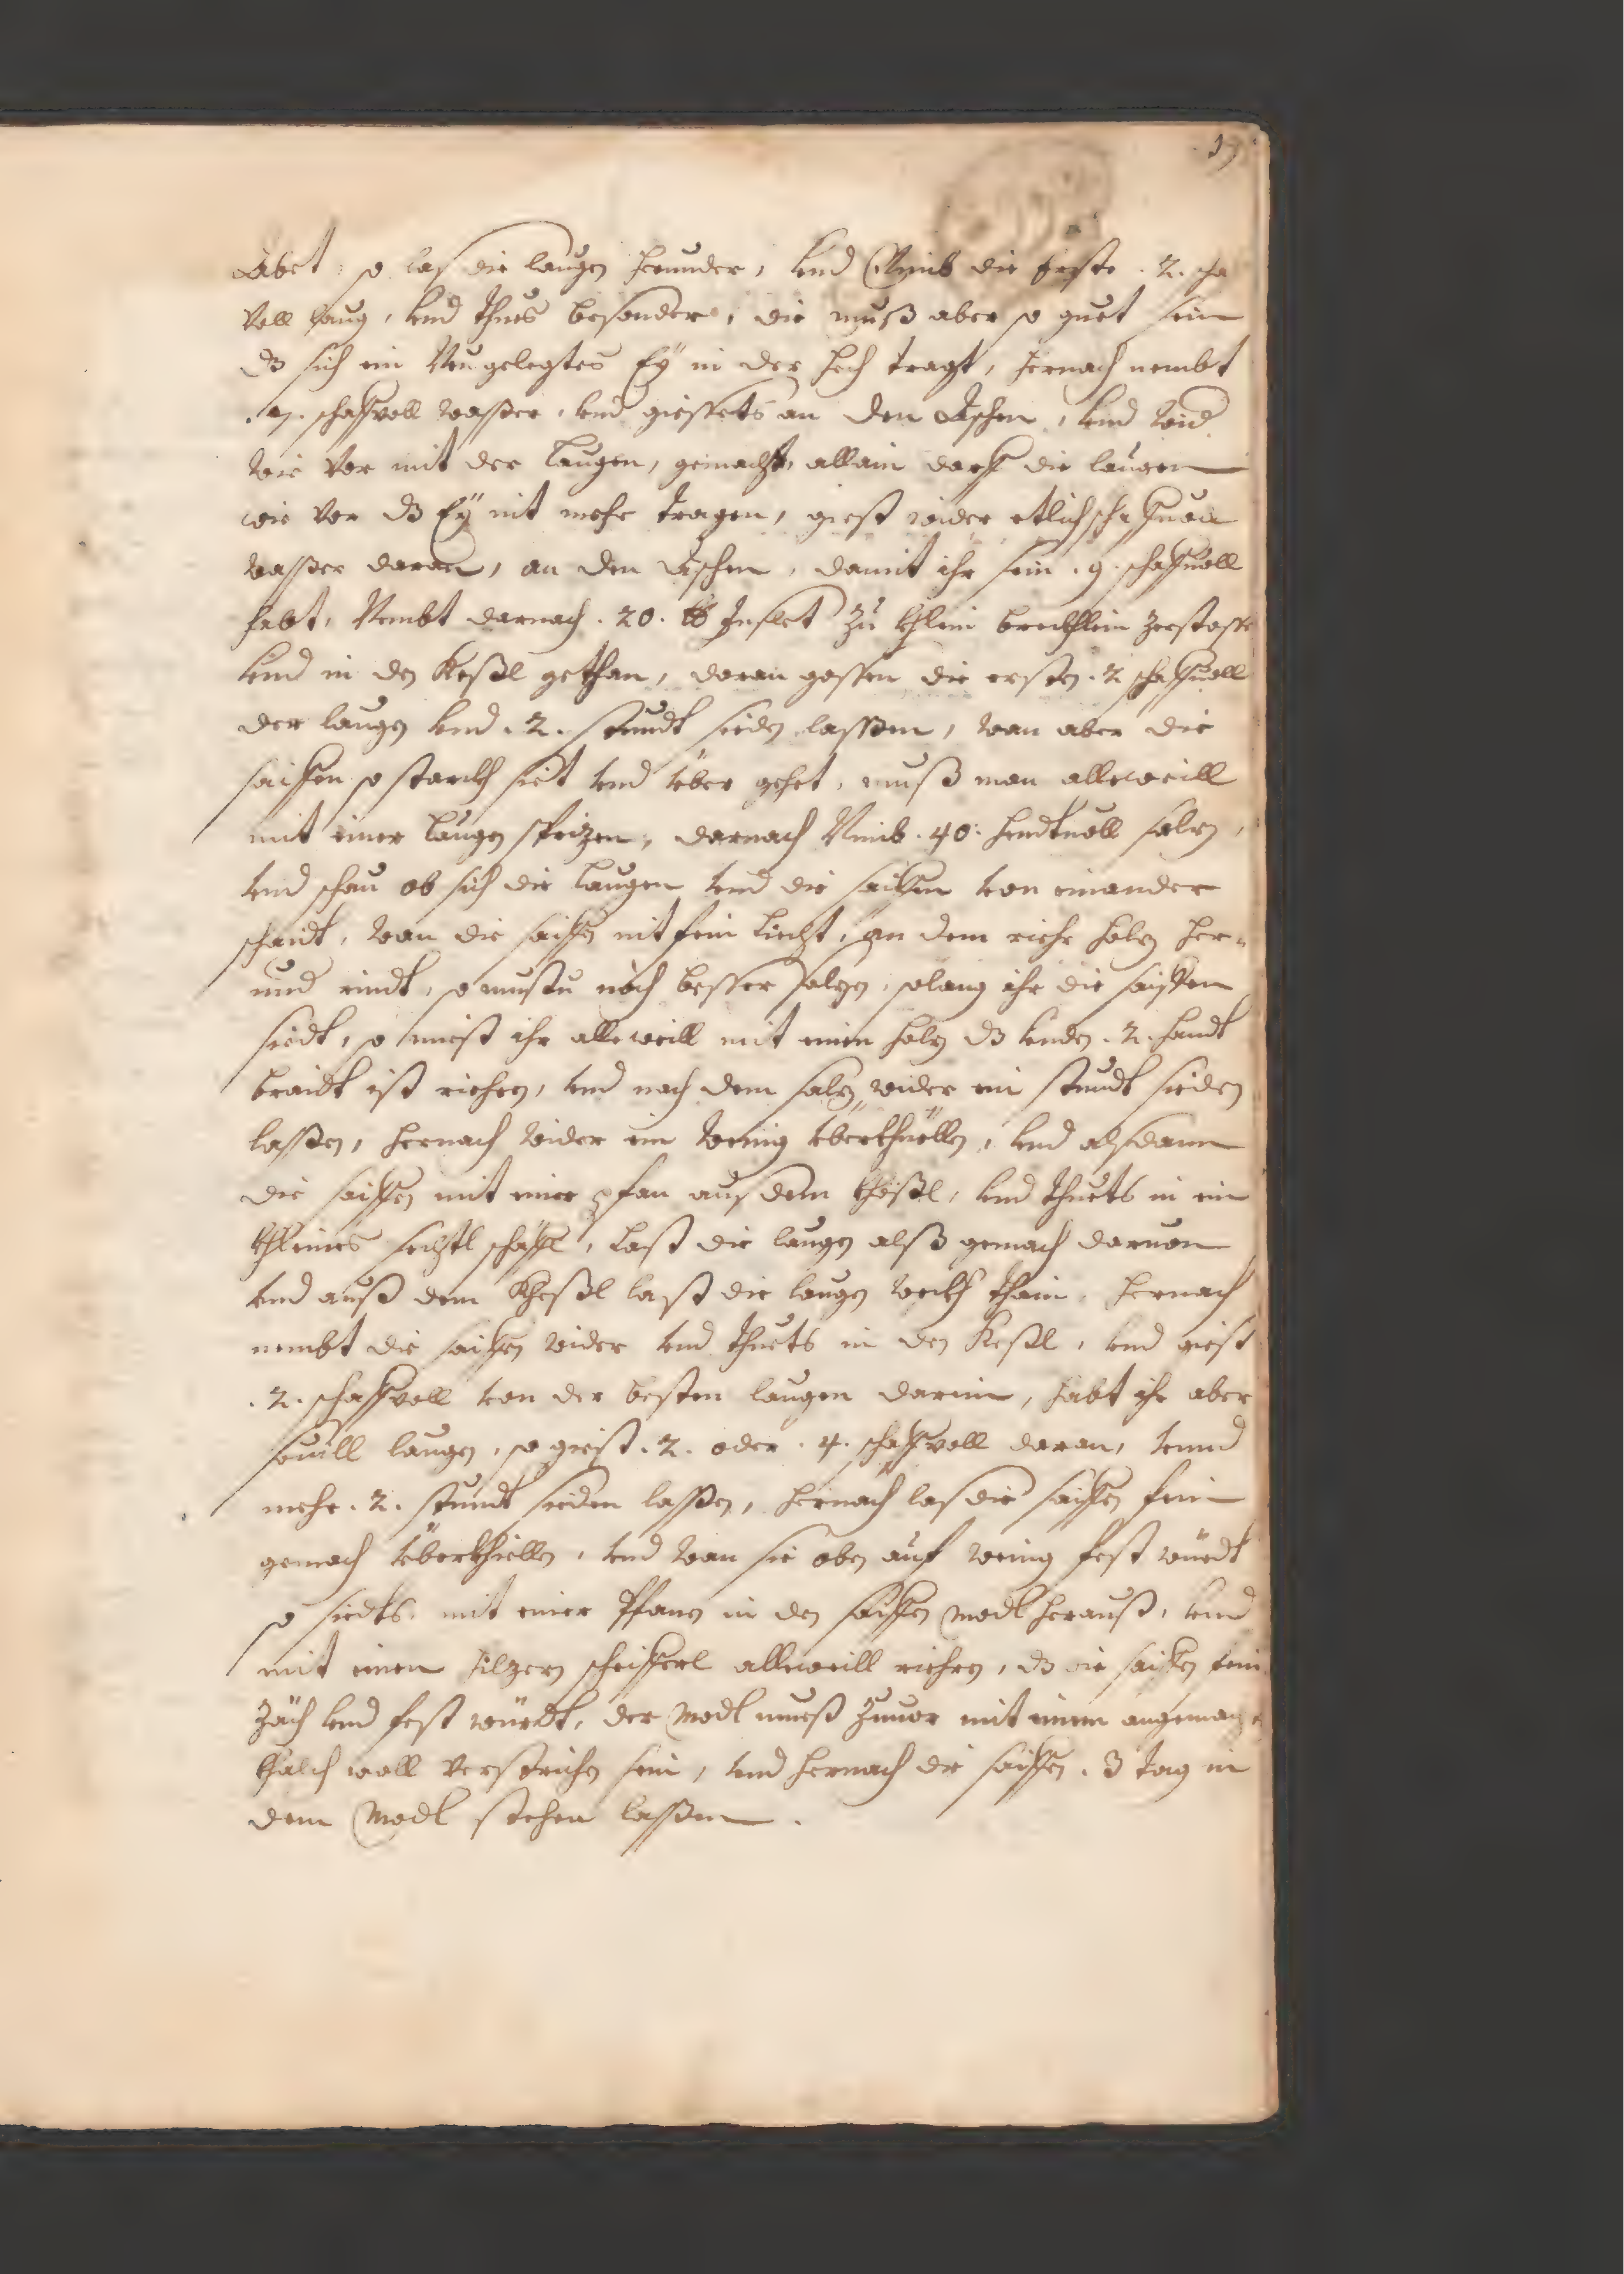 19
Abet: so las die laugen herunder, vnd Nimb die Erste .2. scha
Voll laug, vnd thues besonder, die muß aber so guet sein
dz sich ein Neugelegtes Eÿ in der hech tragt, hernach nembt
.7. schaffvoll waßer, vnd giessets an den Aschen, vnd wid
wie vor mit der laugen, gemacht, allain darff die laugen
wie vor dz Eÿ nit mehr tragen, giest wider etlich schaffuoll
waßer daran, an den Aschen, damit ihr sein .9. schaffuoll
habt, Nembt darnach .20. ℔ Inslet zu khlein brockhlein zerstosse
vnd in den Keßl gethan, daran gossen die ersten .2 schaffuoll
der laugen vnd .2. stundt sieden laßen, wan aber die
saiffen so starckh siet vnd über gehet, muß man alleweill
mit einer laugen sprizen, darnach Nimb .40. handtuoll salz,
vnd schau ob sich die laugen vnd die saiffen von einander
schaidt, wan die saiffen nit fein liecht, an dem riehr holz her=
und rindt, so mustu noch besser salzen, solang ihr die saiffen
siedt, so miest ihr alleweill mit einen holz dz unden .2. handt
braidt ist riehren, vnd nach dem salz wider ein stundt sieden
laßen, hernach wider ein wenig überkhüellen, vnd alsdann
die saiffen mit einer pfan aus dem kheßl, vnd thuets in ein
khleines sechtl schäffl, last die laugen alß gemach daruon
vnd auß dem Kheßl last die laugen weckh thain, hernach
nembt die saiffen wider vnd thuets in den Keßl, vnd giest
.2. schaffvoll von der besten laugen darein, habt ihr aber
souill laugen, so giest .2. oder .4. schaffvoll daran, vnnd
mehr .2. stundt sieden laßen, hernach las die saiffen fein
gemach überkhiellen, vnd wan sie oben auf wenig fest würdt
so siedts mit einer Pfanen in den saiffen Modl herauß, vnd
mit einen hilzern scheifferl alleweill riehren, dz die saiffen fein
zäch vnd fest würdt, der Modl mueß zuuor mit einem angemach
khalch woll verstrichen sein, vnd hernach die saiffen .3 tag in
dem Modl stehen laßen.